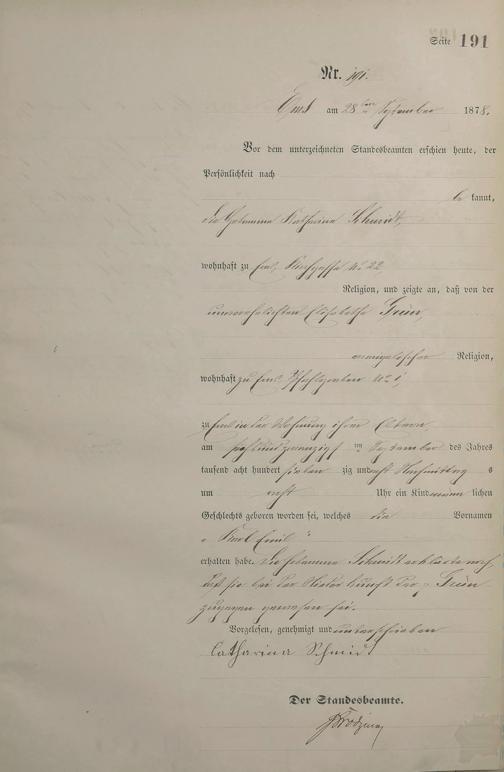 Seite 191
Nr. 191.
Ems am 28ten September 1878.
Vor dem unterzeichneten Standesbeamten erschien heute, der
Persönlichkeit nach
be kannt,
die Hebamme Katharina Schmidt,
wohnhaft zu Ems, Kirchgasse No 22,
Religion, und zeigte an, daß von der
unverehelichten Elisabetha Grün,
evangelischer Religion,
wohnhaft zu Ems, Pfahlgraben No 1,
zu Ems in der Wohnung ihrer Eltern,
am sechsundzwanzigsten September des Jahres
tausend acht hundert sieben zig und acht Nachmittag s
um acht Uhr ein Kind männ lichen
Geschlechts geboren worden sei, welches die Vornamen
„Karl Emil“
erhalten habe. Die Hebamme Schmidt erklärte noch,
daß sie bei der Niederkunft der p. Grün
zugegen gewesen sei.
Vorgelesen, genehmigt und unterschrieben
Catharina Schmidt
Der Standesbeamte.